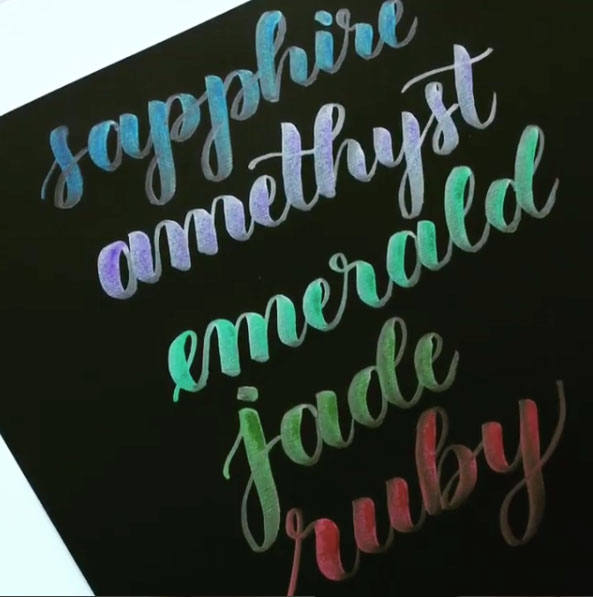 sapphire
amethyst
emerald
jade
ruby